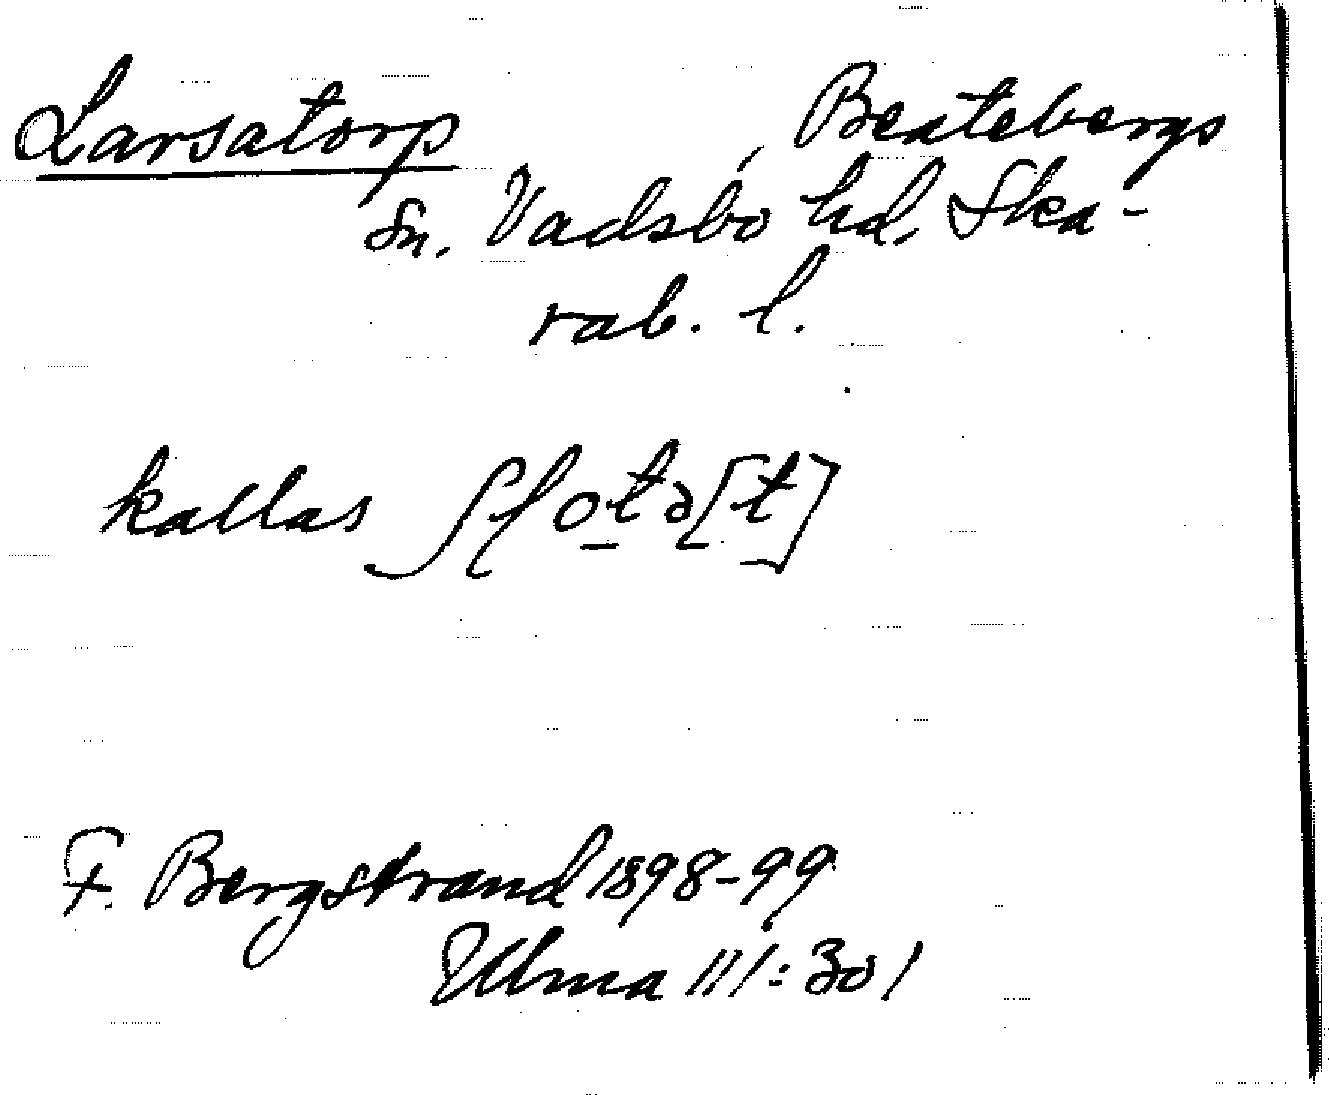 Larsatorp, Beatebergs
sn. Vadsbo hd, Ska-
rab. l.
kallas
F. Bergstrand 1898-99
Ulma 111:301